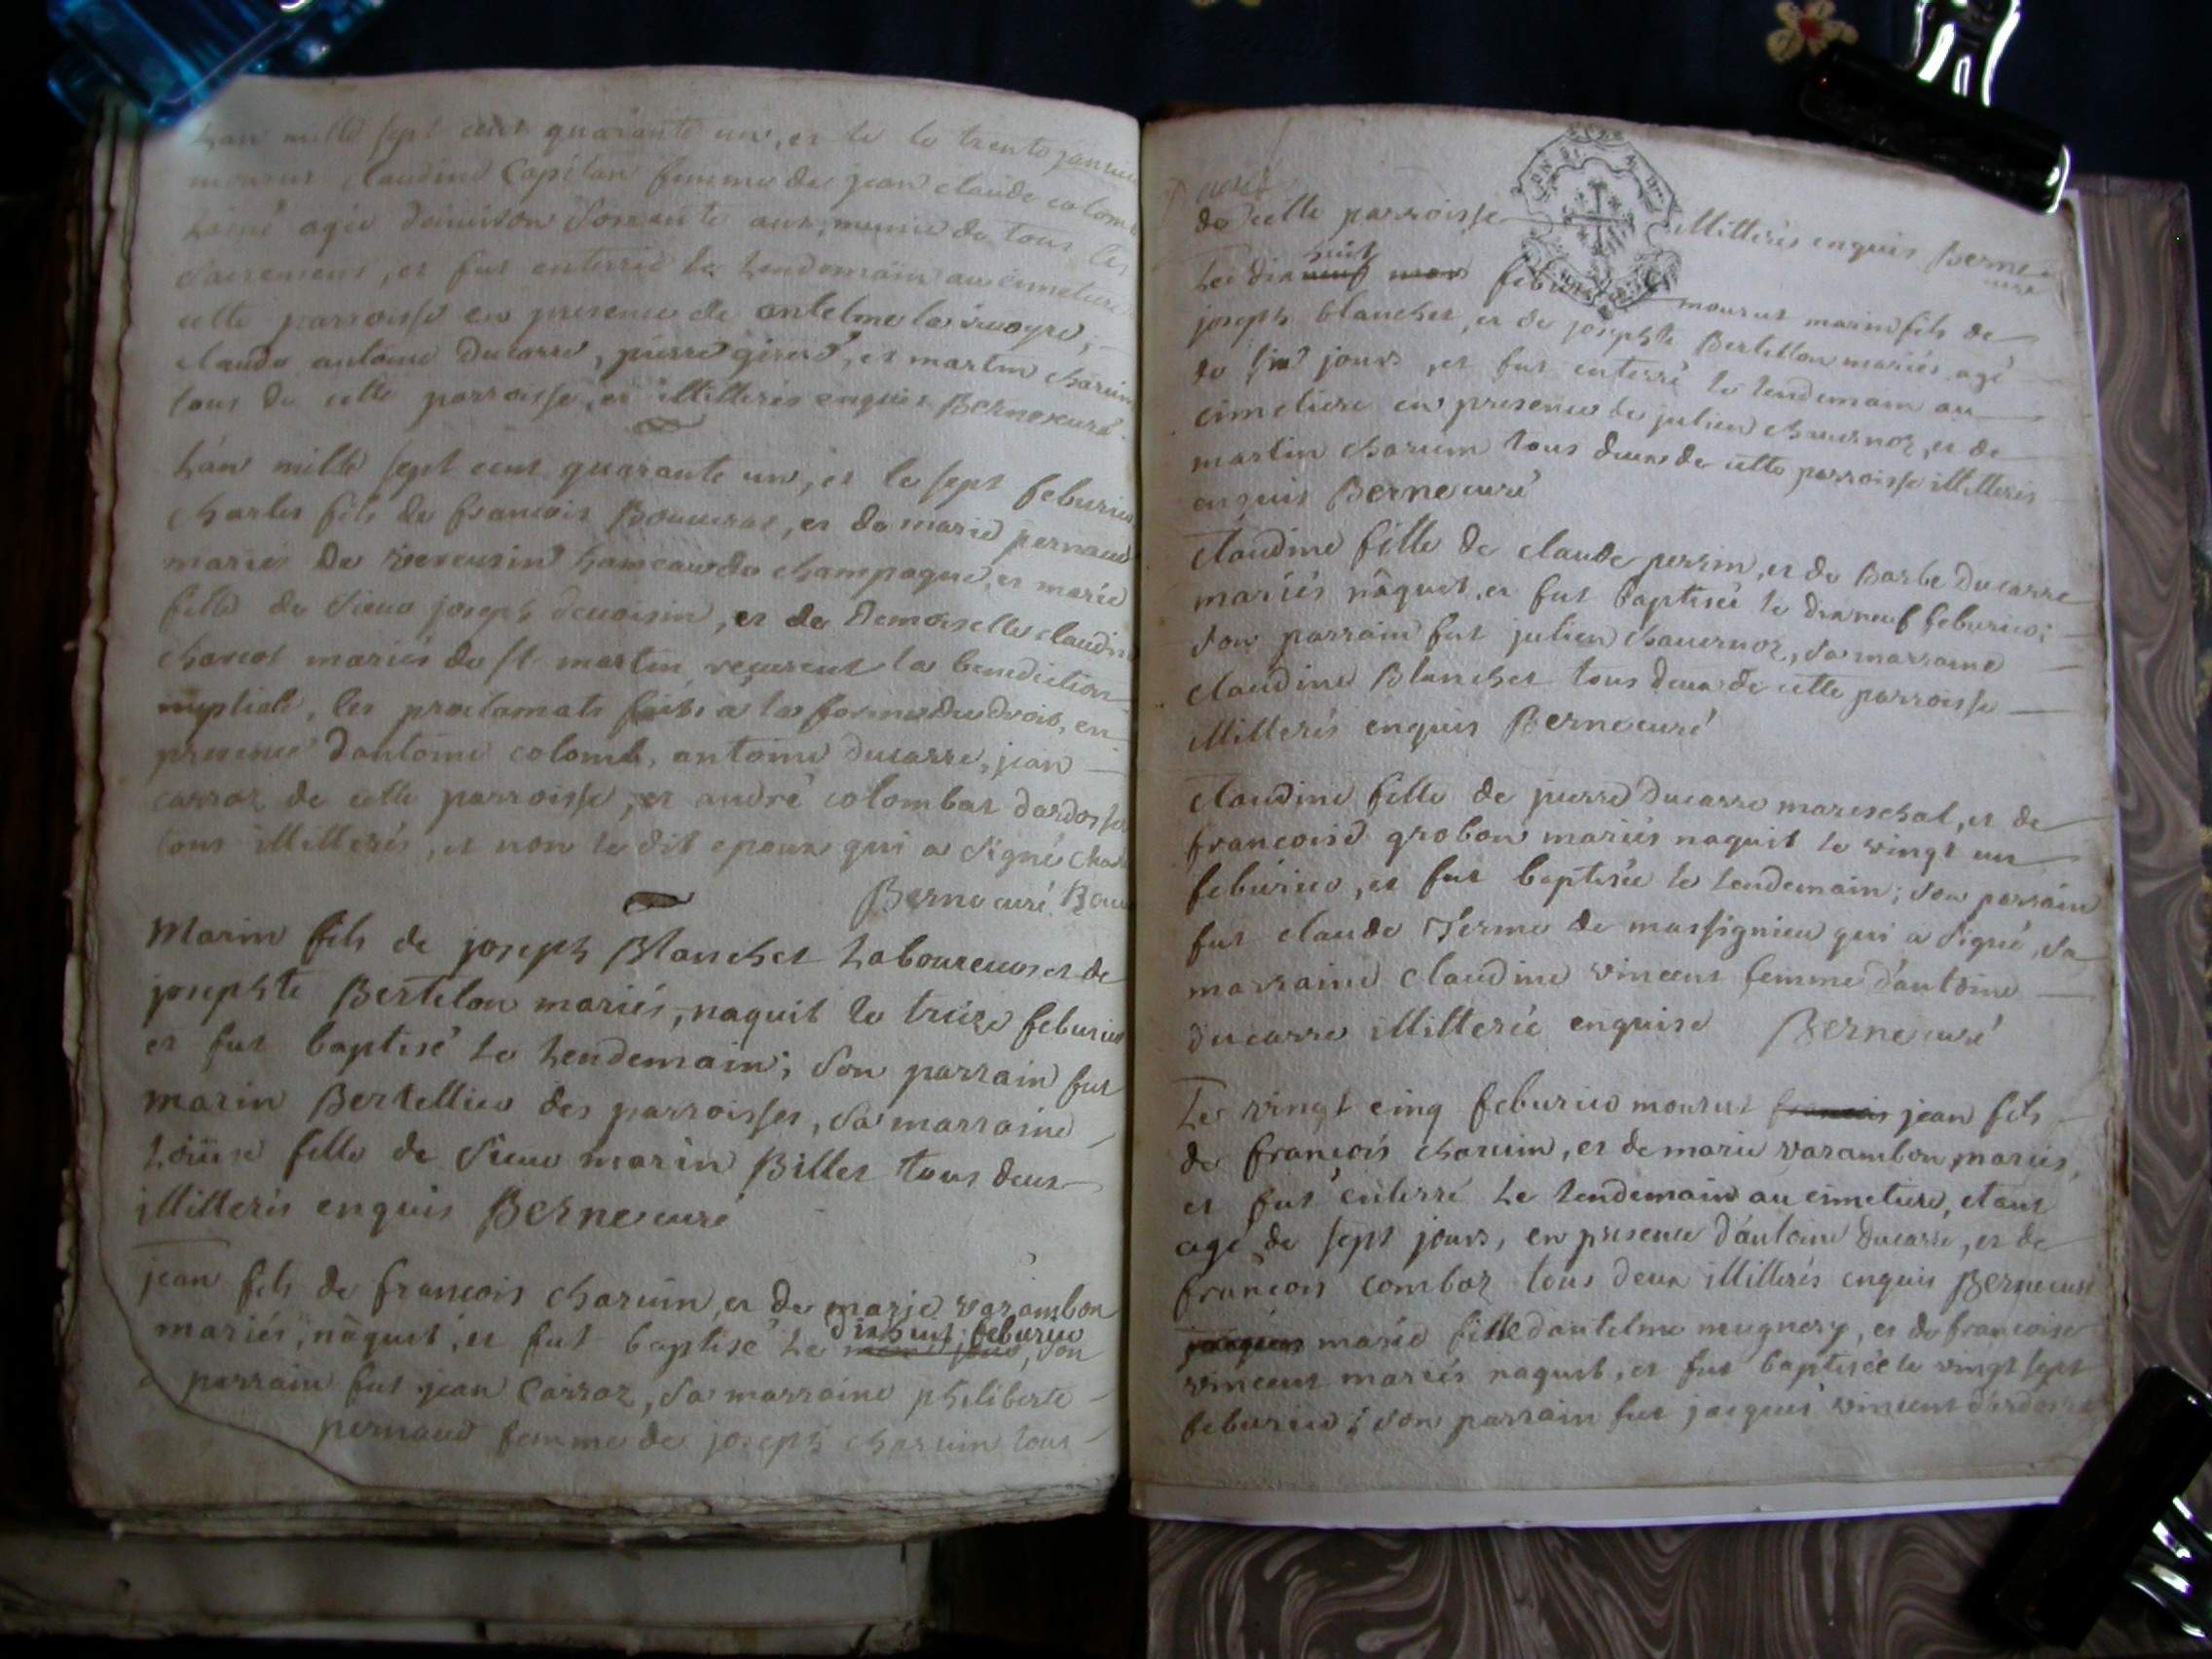 Lan mille sept cent quarante un, et le trente janvier
mourut claudine Capitan femme de jean claude colomb
agée denviron soixante ans, munie de tous les
sacremens, et fut enterrée le lendemain au cimetiere
cette parroisse en presence de antelme
claude antoine Ducarre, pierre girerd, et martin charvin
tous de cette parroisse, et illitterés enquis Berne curé
Lan mille sept cent quarante un, et le sept feburier
charles fils de francois et de marie pernaud
mariés de hameau de champagne, et marie
fille de sieur joseph devoisin, et de Demoiselle claudine
charcot mariés de st martin reçurent la benediction
nuptiale, les proclamats faits à la forme du droit, en
presence dantoine colomb, antoine Ducarre, jean
carroz de cette parroisse, et andré colombat dardosset
tous illitterés, et non le dit epoux qui a signé
Berne curé
Marin fils de joseph Blanchet Laboureur et de
josephte Bertelon mariés, naquit le treize feburier
et fut baptisé Le Lendemain; son parrain fut
marin Bertellier des parroisses, sa marraine
Loüise fille de sieur marin Billet tous deux
illitterés enquis Berne curé
jean fils de francois charvin, et de marie varambon
mariés, nâquit, et fut baptisé Le dixhuit feburier, son
parrain fut jean Carroz, sa marraine philiberte
pernaud femme de joseph charvin tous
de cette parroisse illitterés enquis Berne curé
Le dix huit feburier mourut marin fils de
joseph blanchet, et de josephte Bertellon mariés agé
de jours, et fut enterré le lendemain au
cimetiere en presence de julien chavernoz, et de
martin charvin tous deux de cette parroisse illitterés
enquis Berne curé
Claudine fille de claude perrin, et de Barbe Ducarre
mariés nâquit, et fut baptisée le dixneuf feburier;
son parrain fut julien chavernoz, sa marraine
claudine Blanchet tous deux de cette parroisse
illitterés enquis Berne curé
Claudine fille de pierre Ducarre mareschal, et de
francoise grobon mariés naquit le vingt un
feburier, et fut baptisée le lendemain; son parrain
fut claude Ferme de massignieu qui a signé, sa
marraine claudine vincent femme d'antoine
ducarre illitterée enquise Berne curé
Le vingt cinq feburier mourut francois jean fils
de francois charvin, et de marie varambon mariés,
et fut enterré Le lendemain au cimetiere, etant
agé de sept jours, en presence d'antoine Ducarre, et de
françois comboz tous deux illitterés enquis Berne curé
jacques marie fille dantelme mugnery, et de francoise
vincent mariés naquit, et fut baptisée le vingt sept
feburier; son parrain fut jacques vincent dardosset